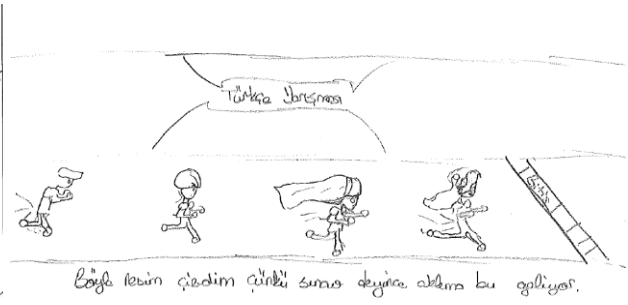 Türkçe Yarışması
Bitiş
Böyle resim çizdim çünkü sınav deyince aklıma bu geliyor.